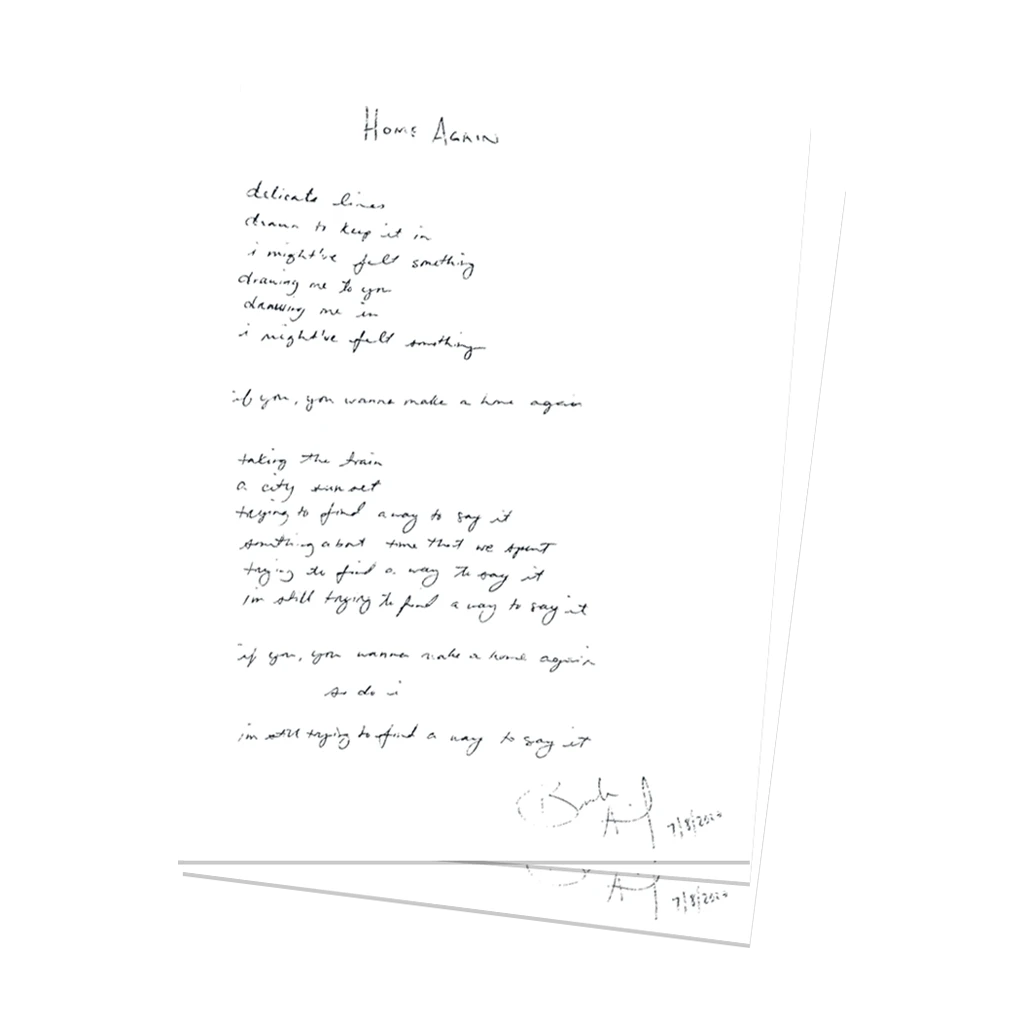 HOME AGAIN
delicate lines
drawn to keep it in
i might've felt something
drawing me to you
drawing me in
i might've felt something
if you, you wanna make a home again
taking the train
a city sunset
trying to find a way to say it
something about time that we spent
trying to find a way to say it
im still trying to find a way to say it
if you, you wanna make a home again
so do i
im still trying to find a way to say it
7/8/2020
7/8/2020